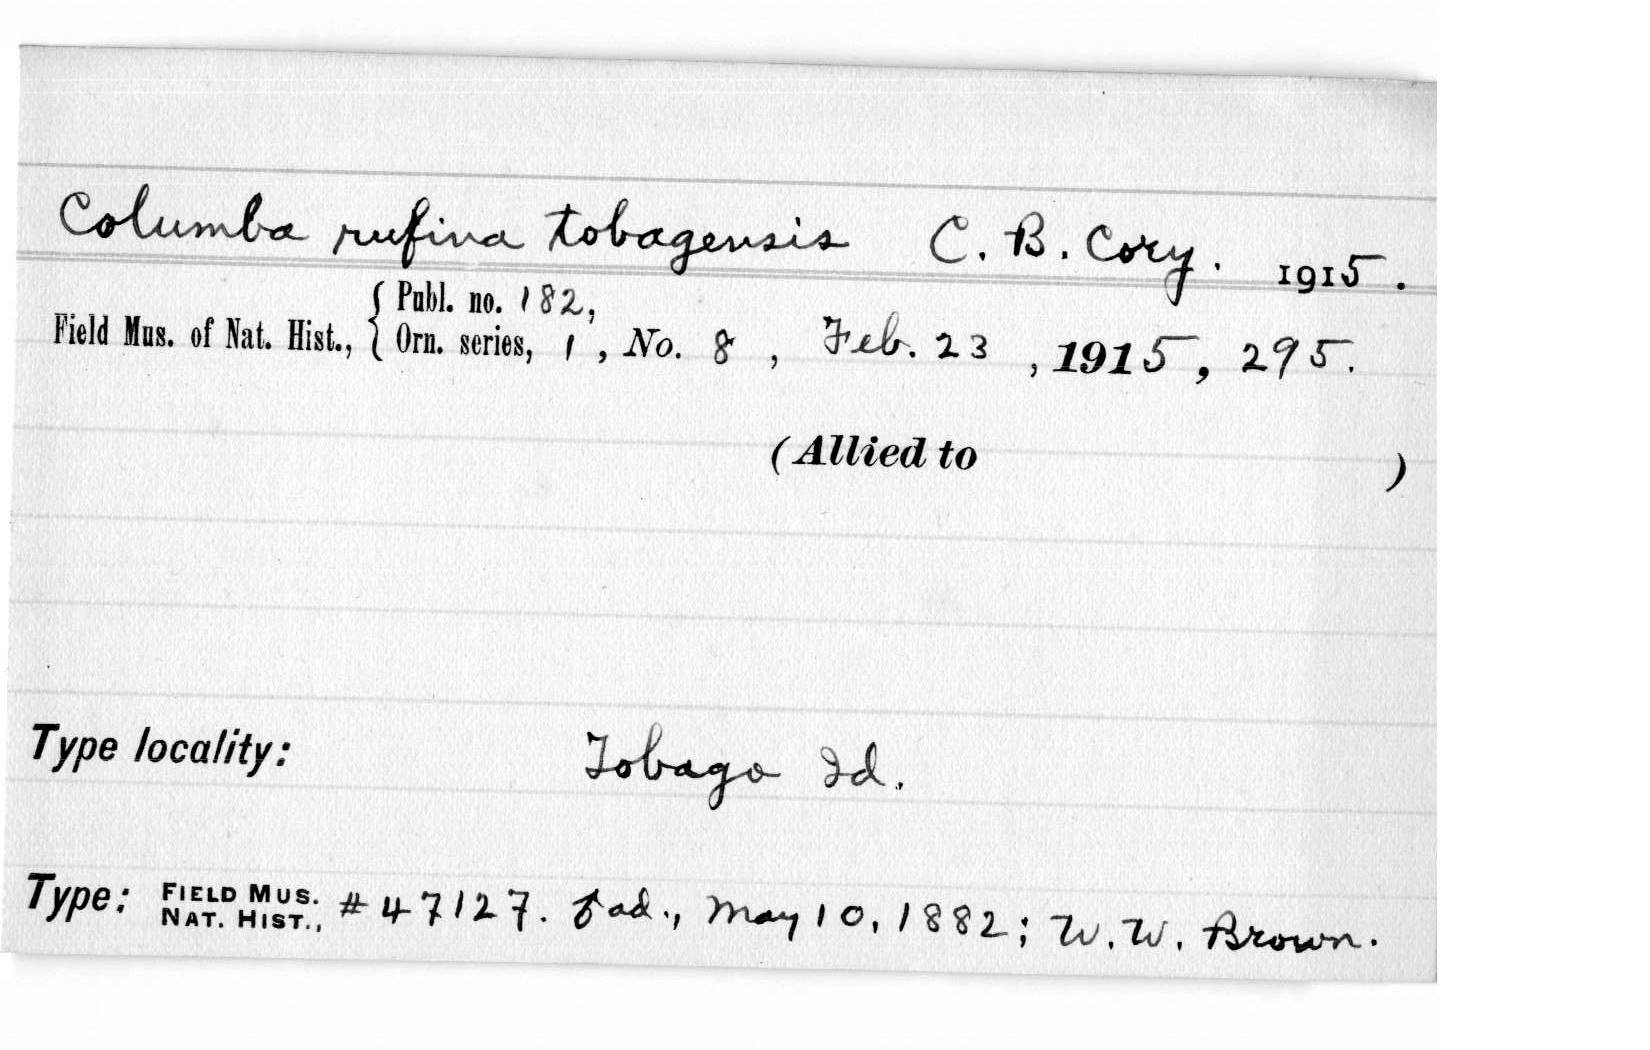 Columba rufina tobagensis C. B. Cory. 1915.
Field Mus. of Nat. Hist., { Publ. no. 182,
Orn. series, 1, No. 8, Feb. 23, 1915, 295.
(Allied to )
Type locality: Tobago Id.
Type: FIELD MUS. NAT. HIST., #47127. ♂ ad., May 10, 1882; W. W. Brown.